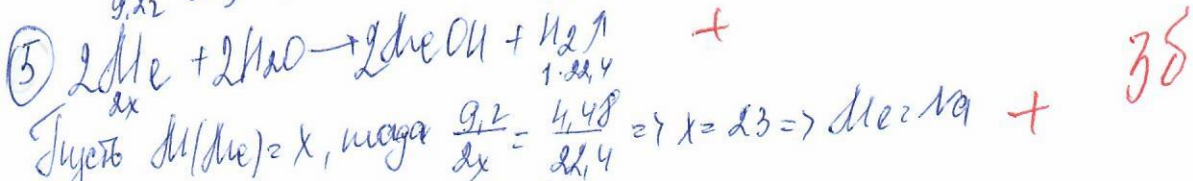 9,2г
⑤ 2Me + 2H2O → 2MeOH + H2↑ + 3б
2x 1·22,4
Пусть M(Me) = x, тогда 9,2/2x = 4,48/22,4 => x = 23 => Me = Na +